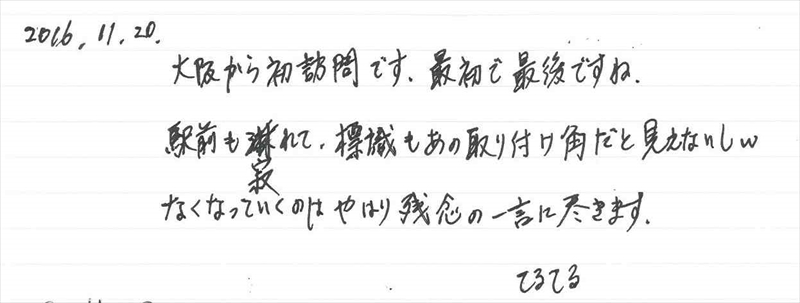 2016.11.20.
大阪から初訪問です。最初で最後ですね。
駅前も寂れて、標識もあの取り付け角だと見えないしw
なくなっていくのはやはり残念の一言に尽きます。
てるてる